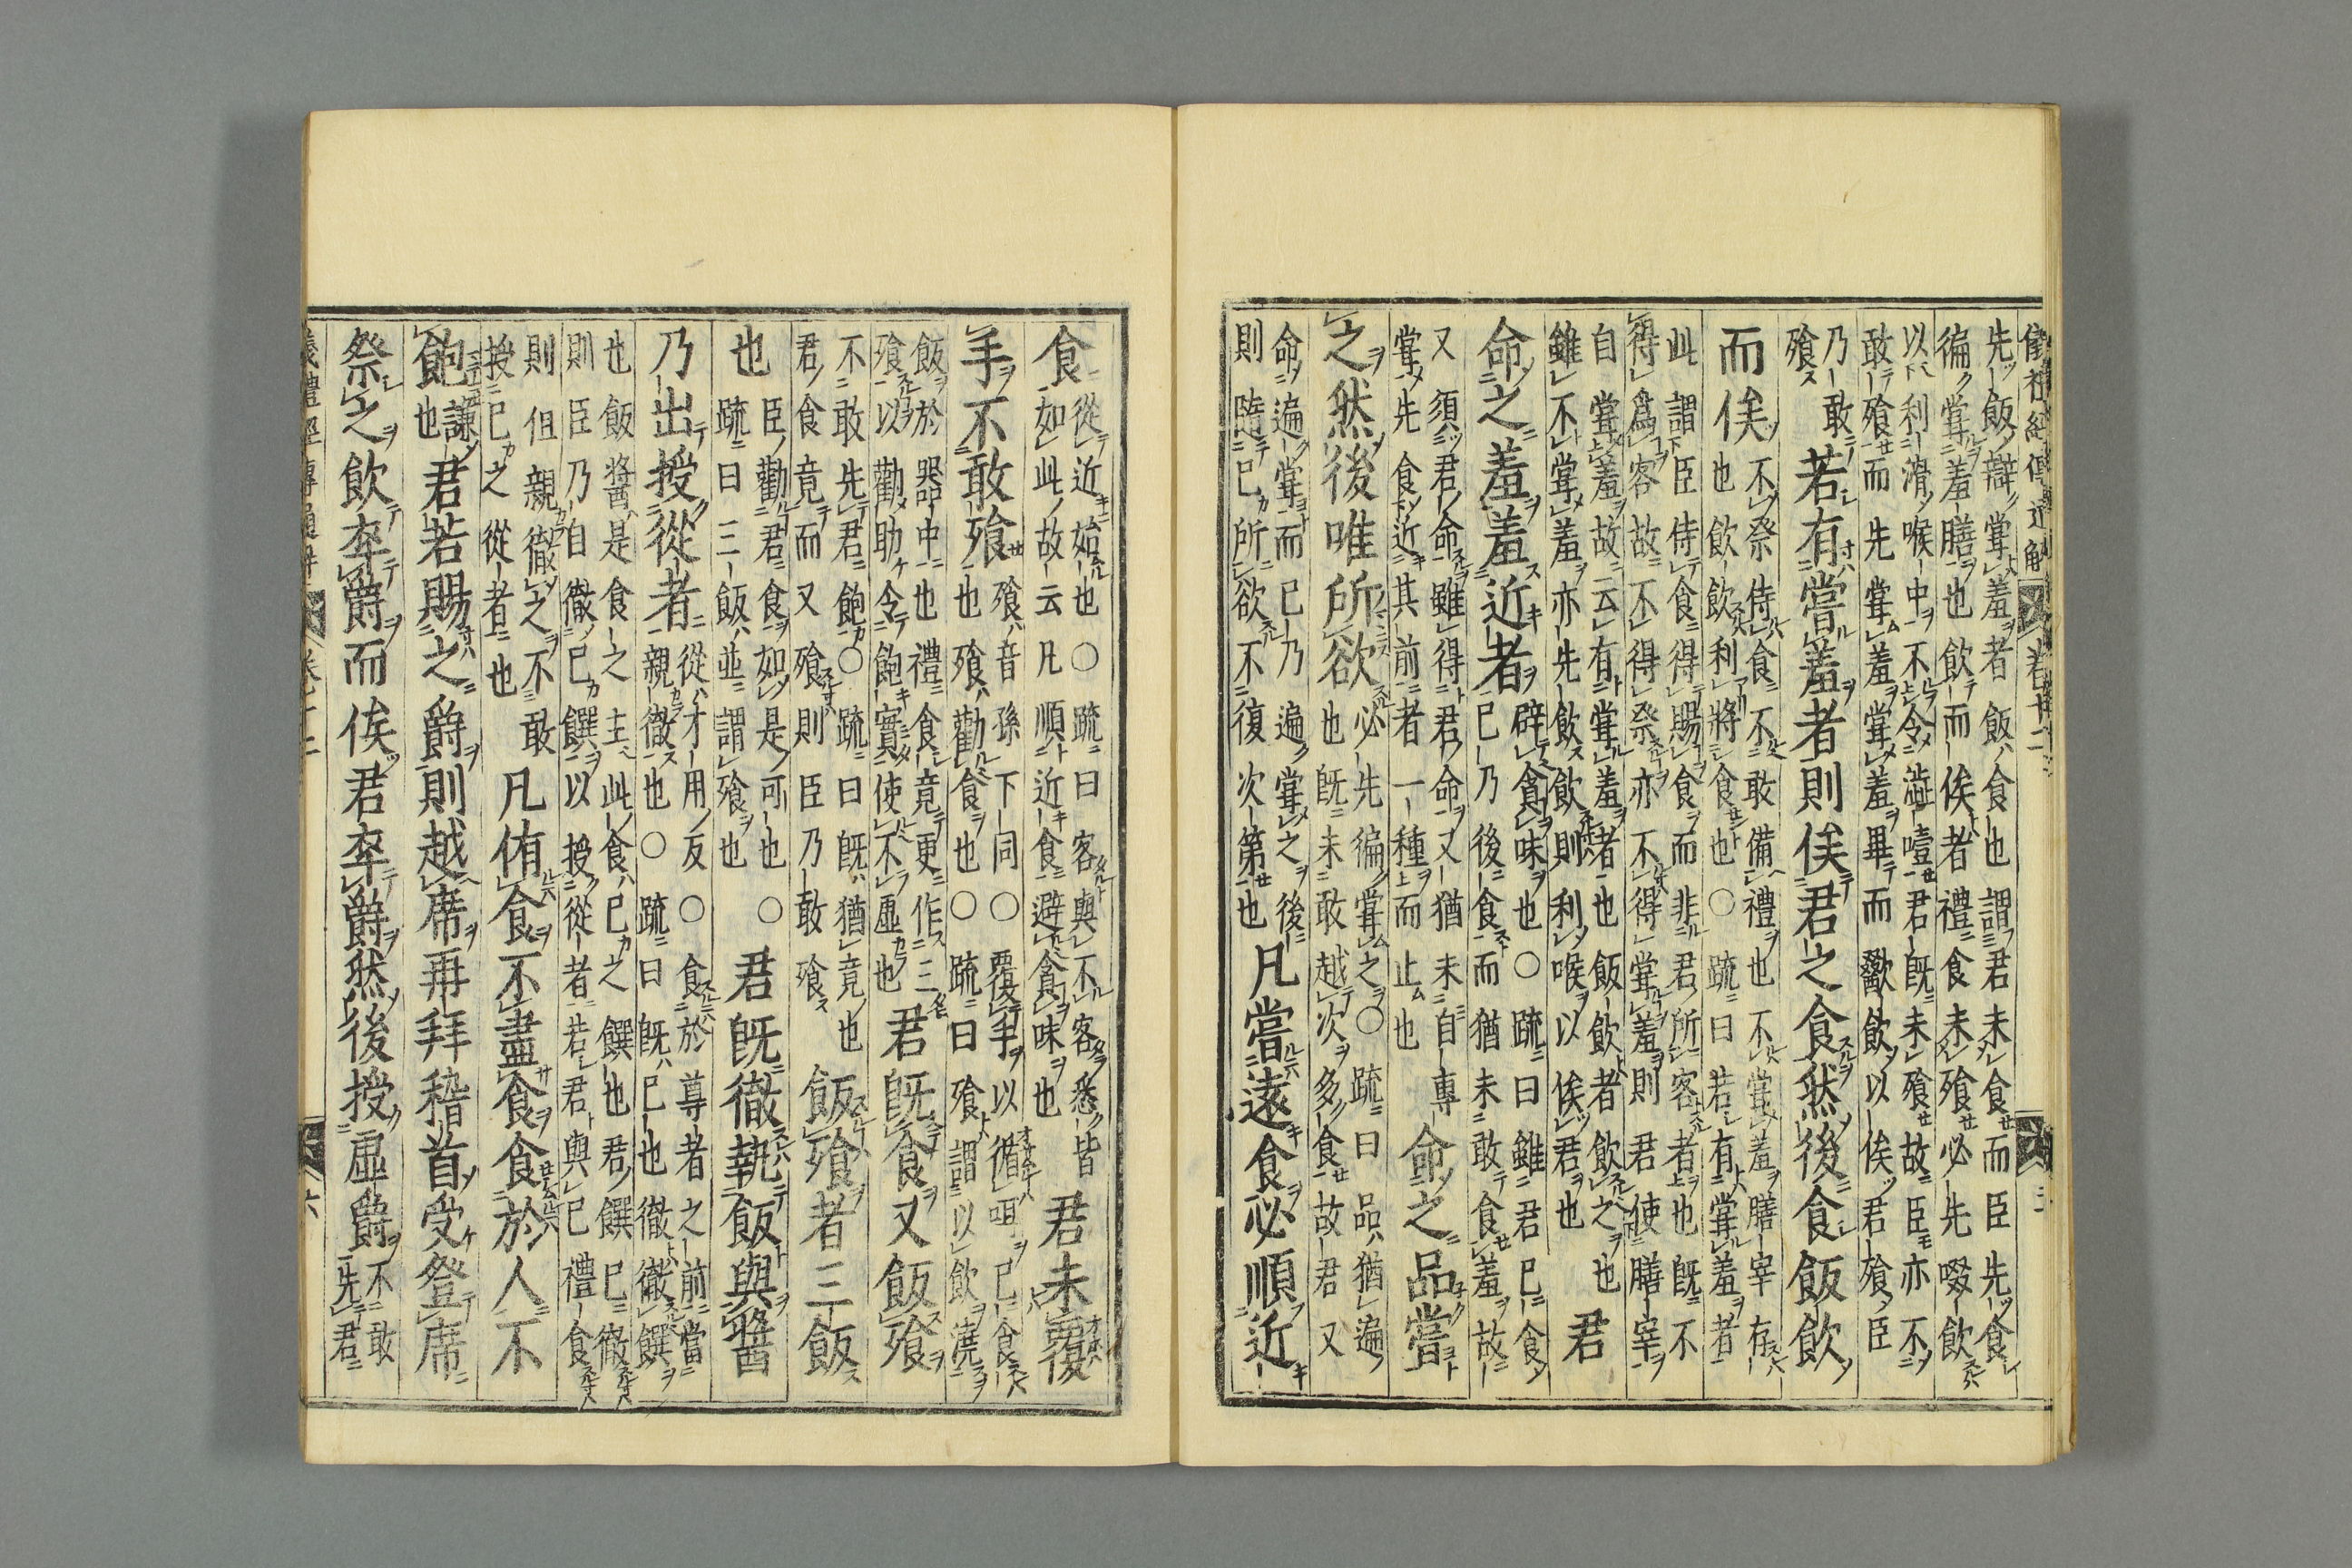 儀禮經傳通解 卷廿二
先飯辯嘗羞者飯食也謂君未食而臣先食
徧嘗羞膳也飲而俟者禮食未飱必先啜飲
以利滑喉中不令澁噎君既未飱故臣亦不
敢飱而先嘗羞嘗羞畢而歠飲以俟君飱臣
乃敢
飱
若有嘗羞者則俟君之食然後食飯飲
而俟
不祭侍食不敢備禮也不嘗羞膳宰存
也飲飲利將食也○疏曰若有嘗羞者
此謂臣侍食得賜食而非君所客者也既不
得爲客故不得祭亦不得嘗羞則君使膳宰
自嘗羞故云有嘗羞者也飯飲者飲之也
雖不嘗羞亦先飲飲則利喉以俟君也
君
命之羞羞近者
辟貪味也○疏曰雖君已食
已乃後食而猶未敢食羞故
又須君命雖得君命又猶未自專
嘗先食近其前者一種而止也
命之品嘗
之然後唯所欲
必先徧嘗之○疏曰品猶遍
也既未敢越次多食故君又
命遍嘗而已乃遍嘗之後
則隨已所欲不復次第也
凡嘗遠食必順近
食
從近始也○疏曰客與不客悉皆
如此故云凡順近食避貪味也
君未覆
手不敢飱
飱音孫下同○覆手以循咡已食
也飱勸食也○疏曰飱謂以飲澆
飯於器中也禮食竟更作三
飱以勸助令飽實使不虚也
君既食又飯飱
不敢先君飽○疏曰既猶竟也
君食竟而又飱則臣乃敢飱
飯飱者三飯
也
臣勸君食如是可也○
疏曰三飯並謂飱也
君既徹執飯與醬
乃出授從者
從才用反○食於尊者之前當
親徹也○疏曰既已也徹徹饌
也飯醬是食之主此食已之饌也君饌已徹
則臣乃自徹已饌以授從者若君與已禮食
則但親徹之不敢
授已之從者也
凡侑食不盡食食於人不
飽
謙
也
君若賜之爵則越席再拜稽首受登席
祭之飲卒爵而俟君卒爵然後授虚爵
不敢
先君